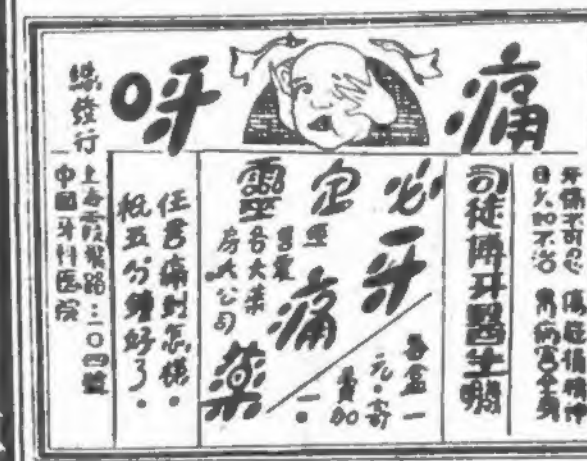 痛呀
牙痛不可忍 傷經損腦神
日久如不治 胃病害全身
司徒博牙醫生
必定靈
牙痛藥
每盒一
元。寄
費加
一。
各大藥
房大公司
任君痛到怎樣。
祇五分鐘好了。
總發行
上海霞飛路二〇四號
中國牙科医院